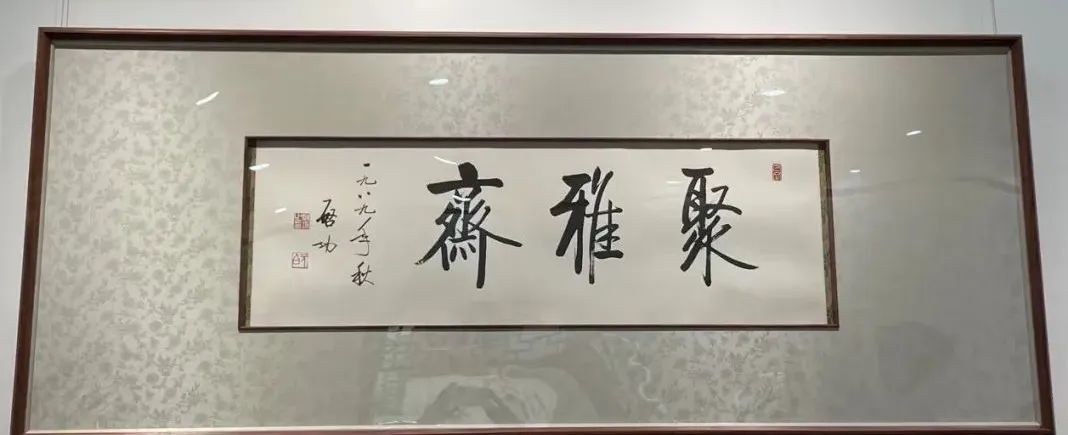 聚雅齋
一九八九年秋
啓功